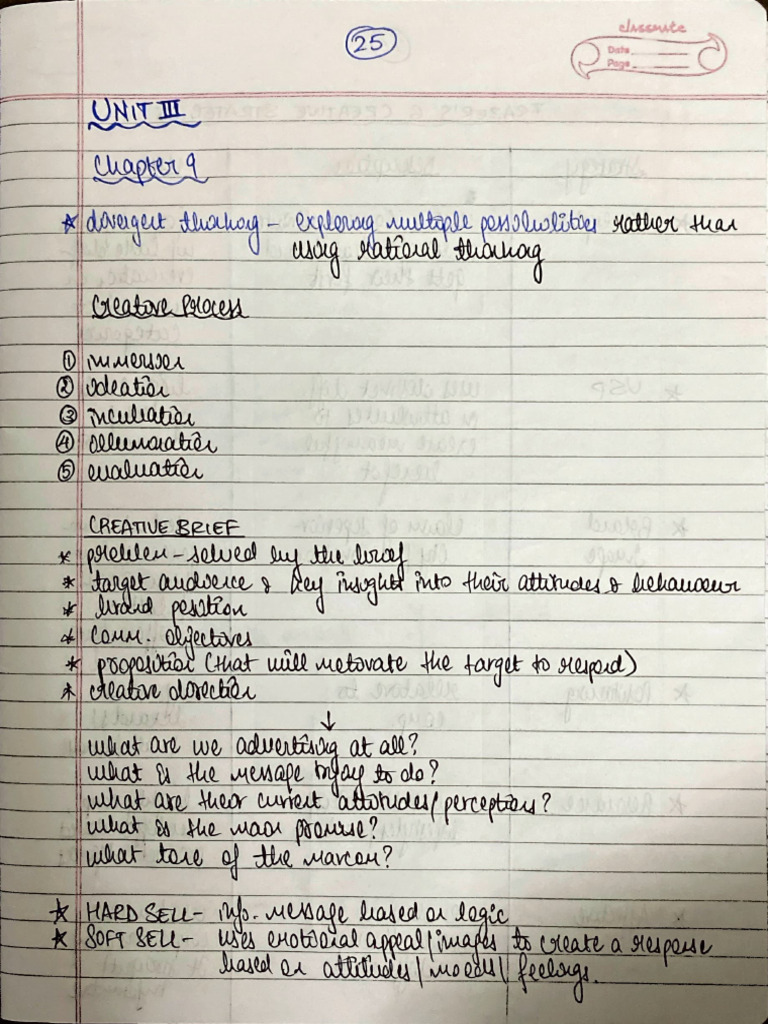 25
classmate
Date
Page
UNIT III
Chapter 9
* divergent thinking - exploring multiple possibilities rather than
using rational thinking
Creative Process
① immersion
② ideation
③ incubation
④ illumination
⑤ evaluation
CREATIVE BRIEF
* problem - solved by the brief
* target audience & key insights into their attitudes & behaviour
* brand position
* comm. objectives
* proposition (that will motivate the target to respond)
* creative direction
↓
what are we advertising at all?
what is the message trying to do?
what are their current attitudes/perceptions?
what is the main promise?
what tone of the marcom?
* HARD SELL - info. message based on logic
* SOFT SELL - uses emotional appeal/images to create a response
based on attitudes/moods/feelings.